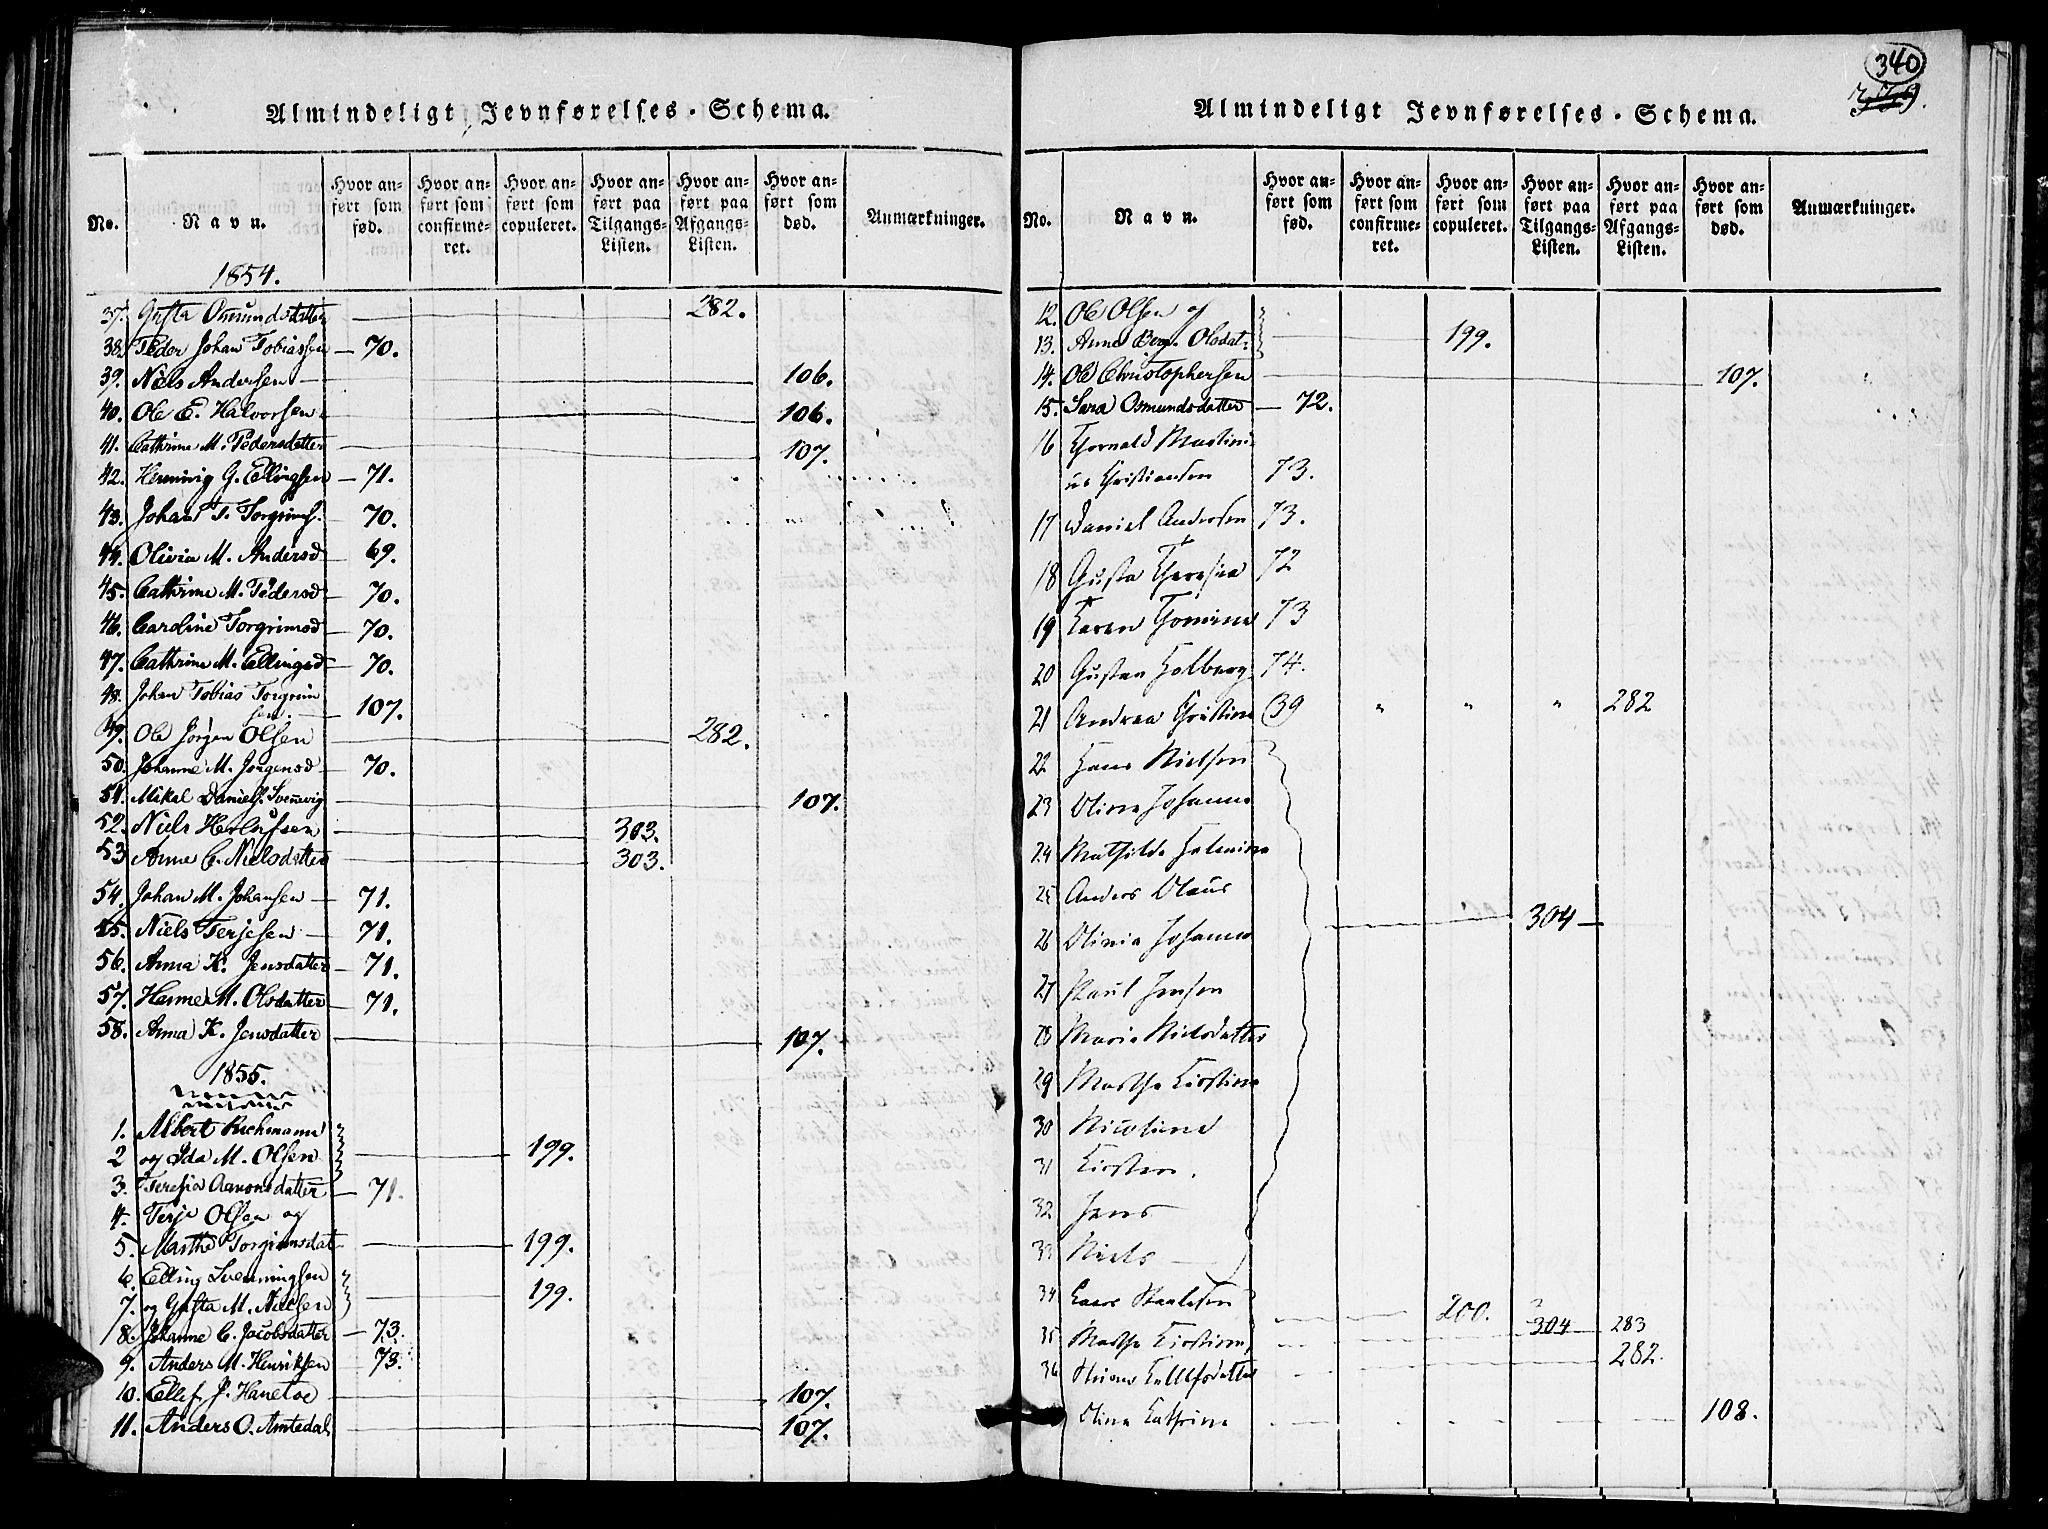 Almindeligt Jevnførelses-Schema.
No. Navn. Hvor anført som fød. Hvor anført som confirmeret. Hvor anført som copuleret. Hvor anført paa Tilgangs-Listen. Hvor anført paa Afgangs-Listen. Hvor anført som død. Anmærkninger.
1854.
37. Gusta Osmundsdatter 282.
38. Peder Johan Tobiassen — 70.
39. Niels Andersen — 106.
40. Ole E. Halvorsen 106.
41. Cathrine M. Pedersdatter 107.
42. Henning G. Ellingsen — 71.
43. Johan T. Torgrims. — 70.
44. Olivia M. Andersd — 69.
45. Cathrine M. Pedersd — 70.
46. Caroline Torgrimsd — 70.
47. Cathrine M. Ellingsd — 70.
48. Johan Tobias Torgrim
sen. — 107.
49. Ole Jørgen Olsen 282.
50. Johanne M. Jørgensd — 70.
51. Mikal Daniels. Svenevig 107.
52. Niels Herlufsen 303.
53 Anne C. Nielsdatter 303.
54. Johan M. Johansen — 71.
55. Niels Terjesen — 71.
56. Anna K. Jensdatter — 71.
57. Hanne M. Olsdatter — 71.
58. Anna K. Jensdatter 107.
1855.
1. Albert
2 og Ida M. Olsen 199.
3. Teresia Aanonsdatter — 71.
4. Terje Olsen og
5. Marthe Torgrimsdat 199.
6. Elling Svenningsen
7. og Gusta M. Nielsen 199.
8. Johanne C. Jacobsdatter — 73.
9. Anders M. Henriksen — 73.
10. Ellef J. 107.
11. Anders O. Amtedal 107.
340
Almindeligt Jevnførelses-Schema.
No. Navn. Hvor anført som fød. Hvor anført som confirmeret. Hvor anført som copuleret. Hvor anført paa Tilgangs-Listen. Hvor anført paa Afgangs-Listen. Hvor anført som død. Anmærkninger.
12. Ole Olsen og
13. Anne Berg. Olsdat. 199.
14. Ole Christophersen 107.
15. Sara Osmundsdatter — 72.
16 Thorvald Martini
us Christiansen 73.
17 Daniel Andersen 73.
18 Gusta Theresia 72
19 Karen Tomine 73
20 Gustav Holberg 74.
21 Andrea Christine (39 " " " 282
22 Hans Nielsen
23 Oline Johanne
24 Mathilde Helmine
25 Anders Olaus
26 Olivia Johanne 304 —
27 Paul Jensen
28 Marie Nielsdatter
29 Marthe Kirstine
30 Nicoline
31 Kirsten.
32 Jens
33 Niels
34 Lars 200. 304 283
35 Marthe Kirstine
36 282.
Oline Cathrine 108.